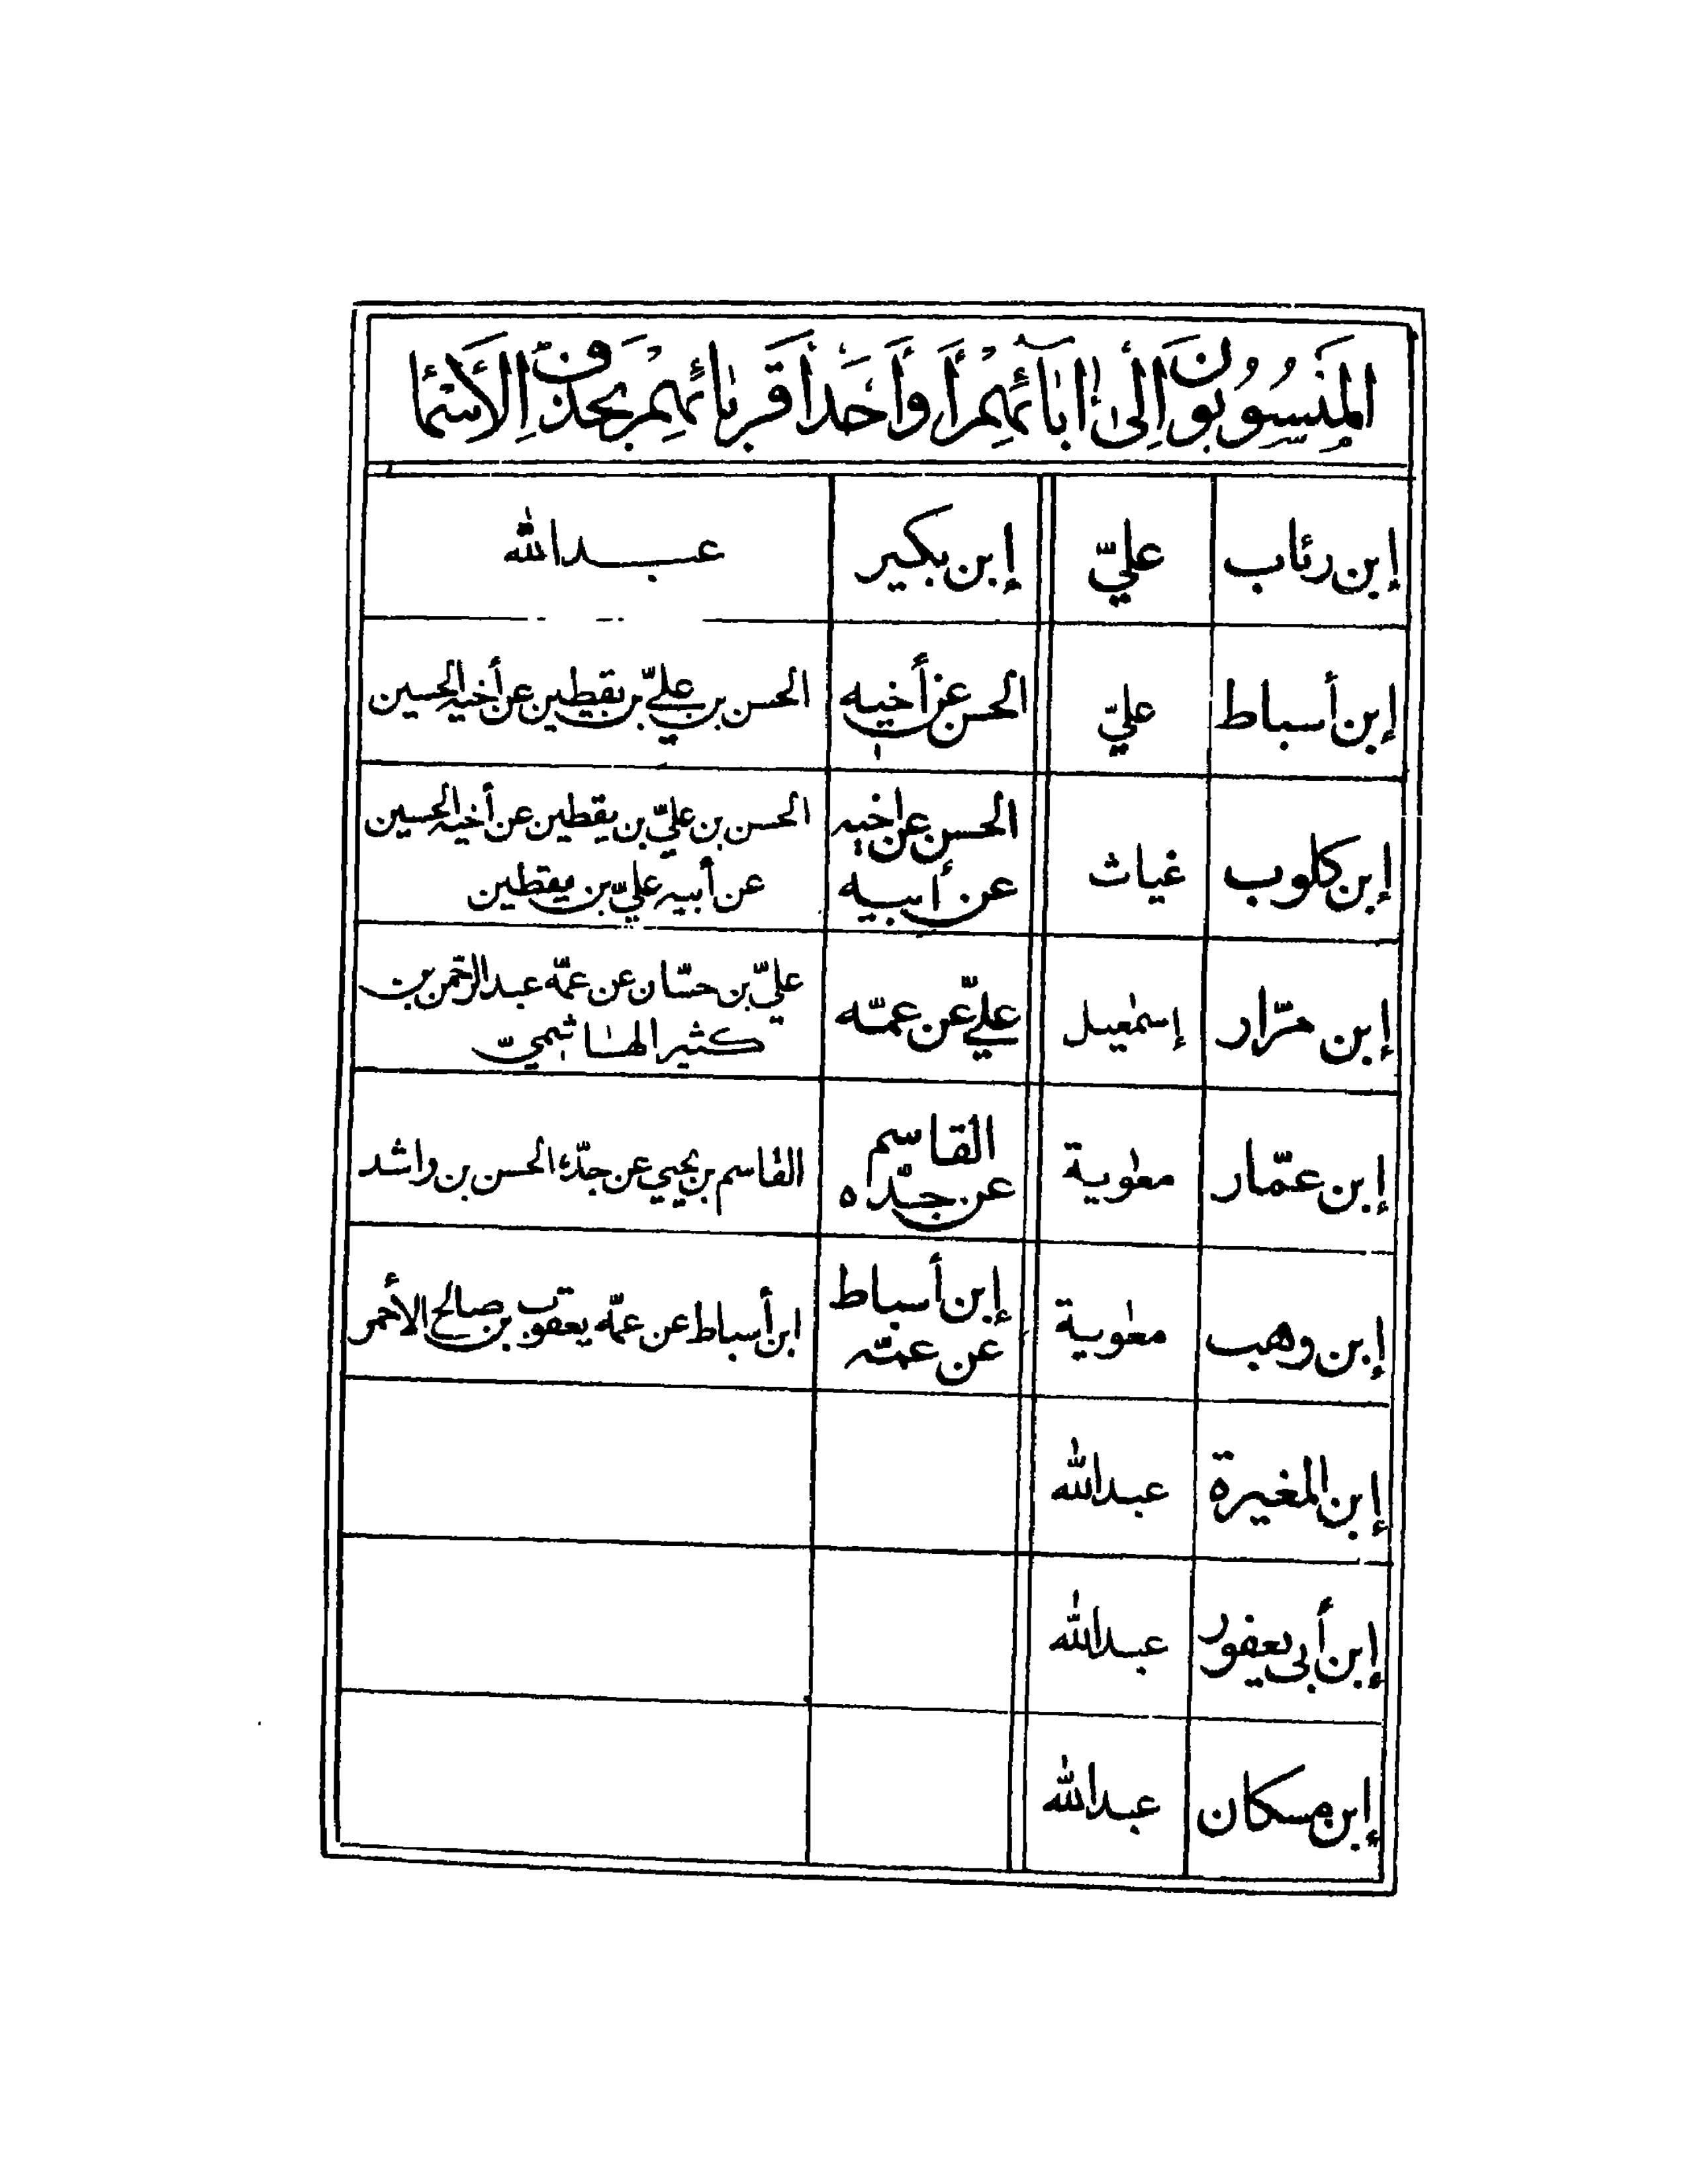 المَنسُوبُونَ إِلىٰ اٰبَائِهِمْ أَوْ أَحَدِ أَقْرِبَائِهِمْ بِحَذفِ الأَسْمَاء
إبن رئاب عليّ إبن بكير عبدالله
إبن أسباط عليّ الحسن عن أخيه الحسن بن عليّ بن يقطين عن أخيه الحسين
إبن كلوب غياث الحسن عن اخيه
عن أبيه الحسن بن عليّ بن يقطين عن أخيه الحسين
عن أبيه عليّ بن يقطين
إبن مرّار إسمٰعيل عليّ عن عمّه عليّ بن حسّان عن عمّه عبدالرّحمن بن
كثير الهاشميّ
إبن عمّار معٰوية القاسم
عن جدّه القاسم بن يحيي عن جدّه الحسن بن راشد
إبن وهب معٰوية إبن أسباط
عن عمّه ابن أسباط عن عمّه يعقوب بن صالح الأحمر
إبن المغيرة عبدالله
إبن أبى يعفور عبدالله
إبن مسكان عبدالله